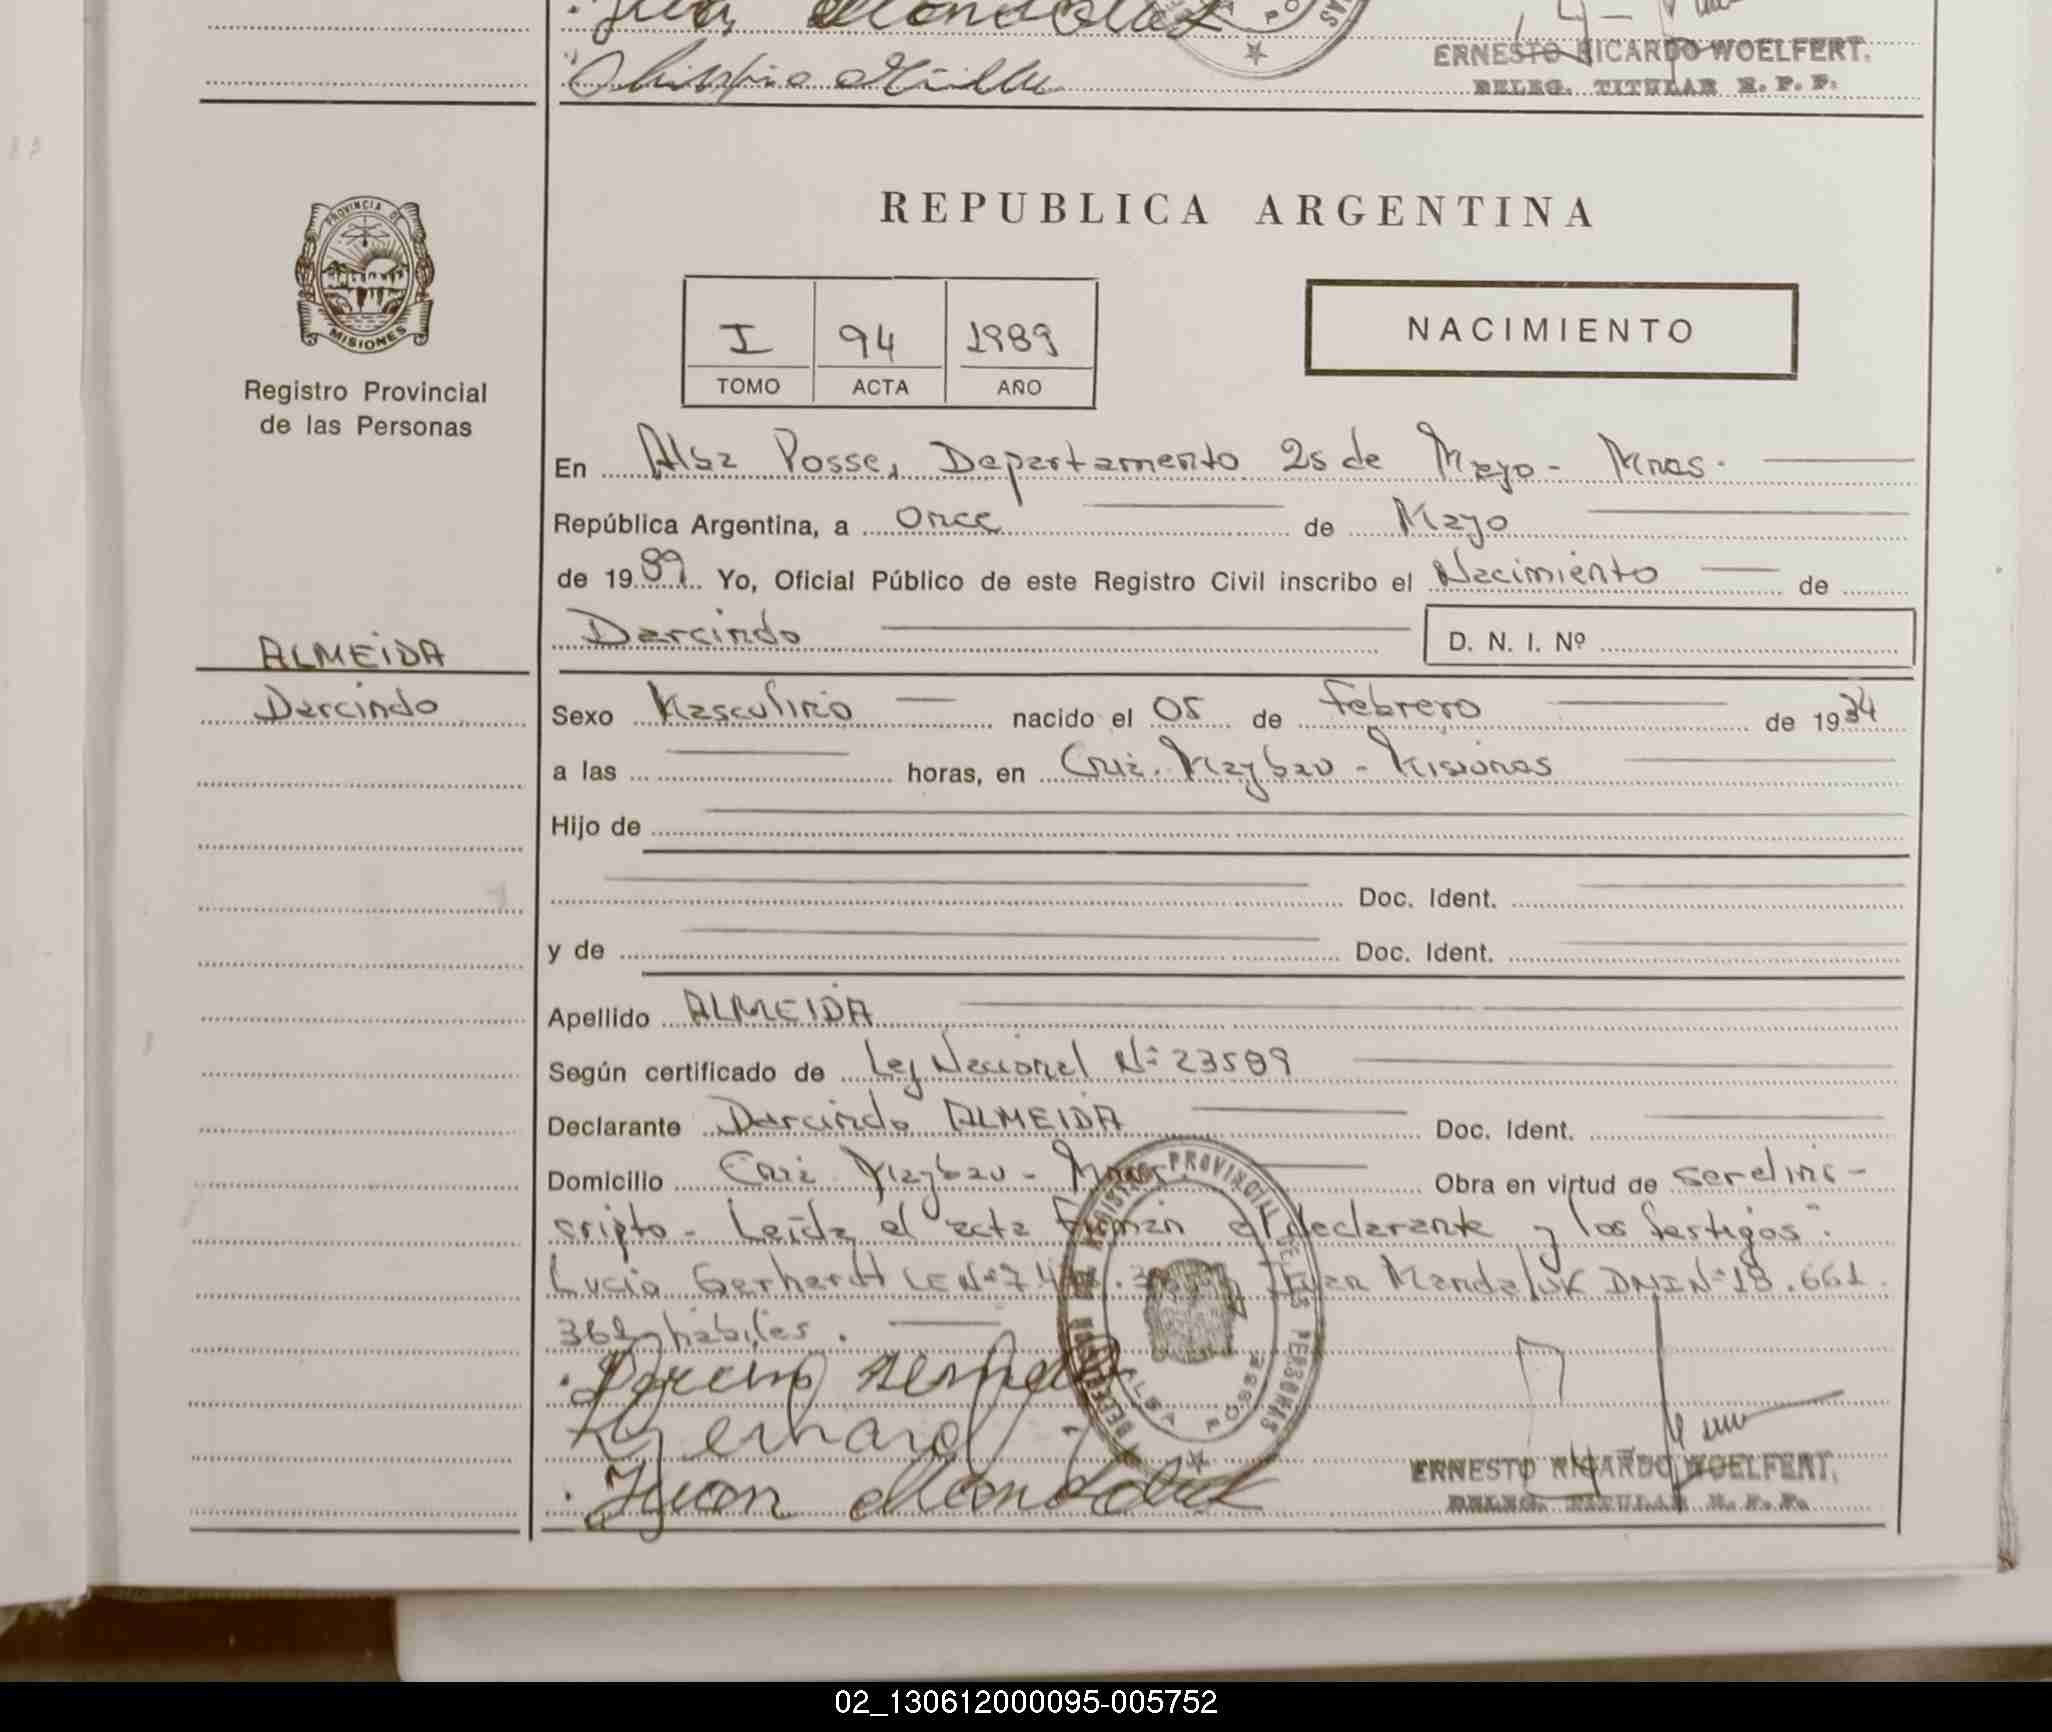 ERNESTO RICARDO WOELFERT.
DELEG. TITULAR R. P. P.
PROVINCIA DE
MISIONES
Registro Provincial
de las Personas
REPUBLICA ARGENTINA
I 94 1989
TOMO ACTA AÑO
NACIMIENTO
En Alba Posse, Departamento 25 de Mayo - Mnes.
República Argentina, a Once de Mayo
de 1989. Yo, Oficial Público de este Registro Civil inscribo el Nacimiento de
Darcindo D. N. I. Nº
ALMEIDA
Darcindo
Sexo Masculino nacido el 05 de Febrero de 1934
a las horas, en Cruz. Maybau - Misiones
Hijo de
Doc. Ident.
y de Doc. Ident.
Apellido ALMEIDA
Según certificado de Ley Nacional Nº 23509
Declarante Darcindo ALMEIDA Doc. Ident.
Domicilio Cruz Maybau - Obra en virtud de ser el ins-
cripto - Leída el acta firman el declarante y los testigos".
Lucio Gerhardt LE Nº 7 Juan Mandaluk DNI Nº 18.661.
362 hábiles.
REGISTRO PROVINCIAL DE LAS PERSONAS
ALBA POSSE
Juan
ERNESTO RICARDO WOELFERT,
DELEG. TITULAR R. P. P.
02_130612000095-005752